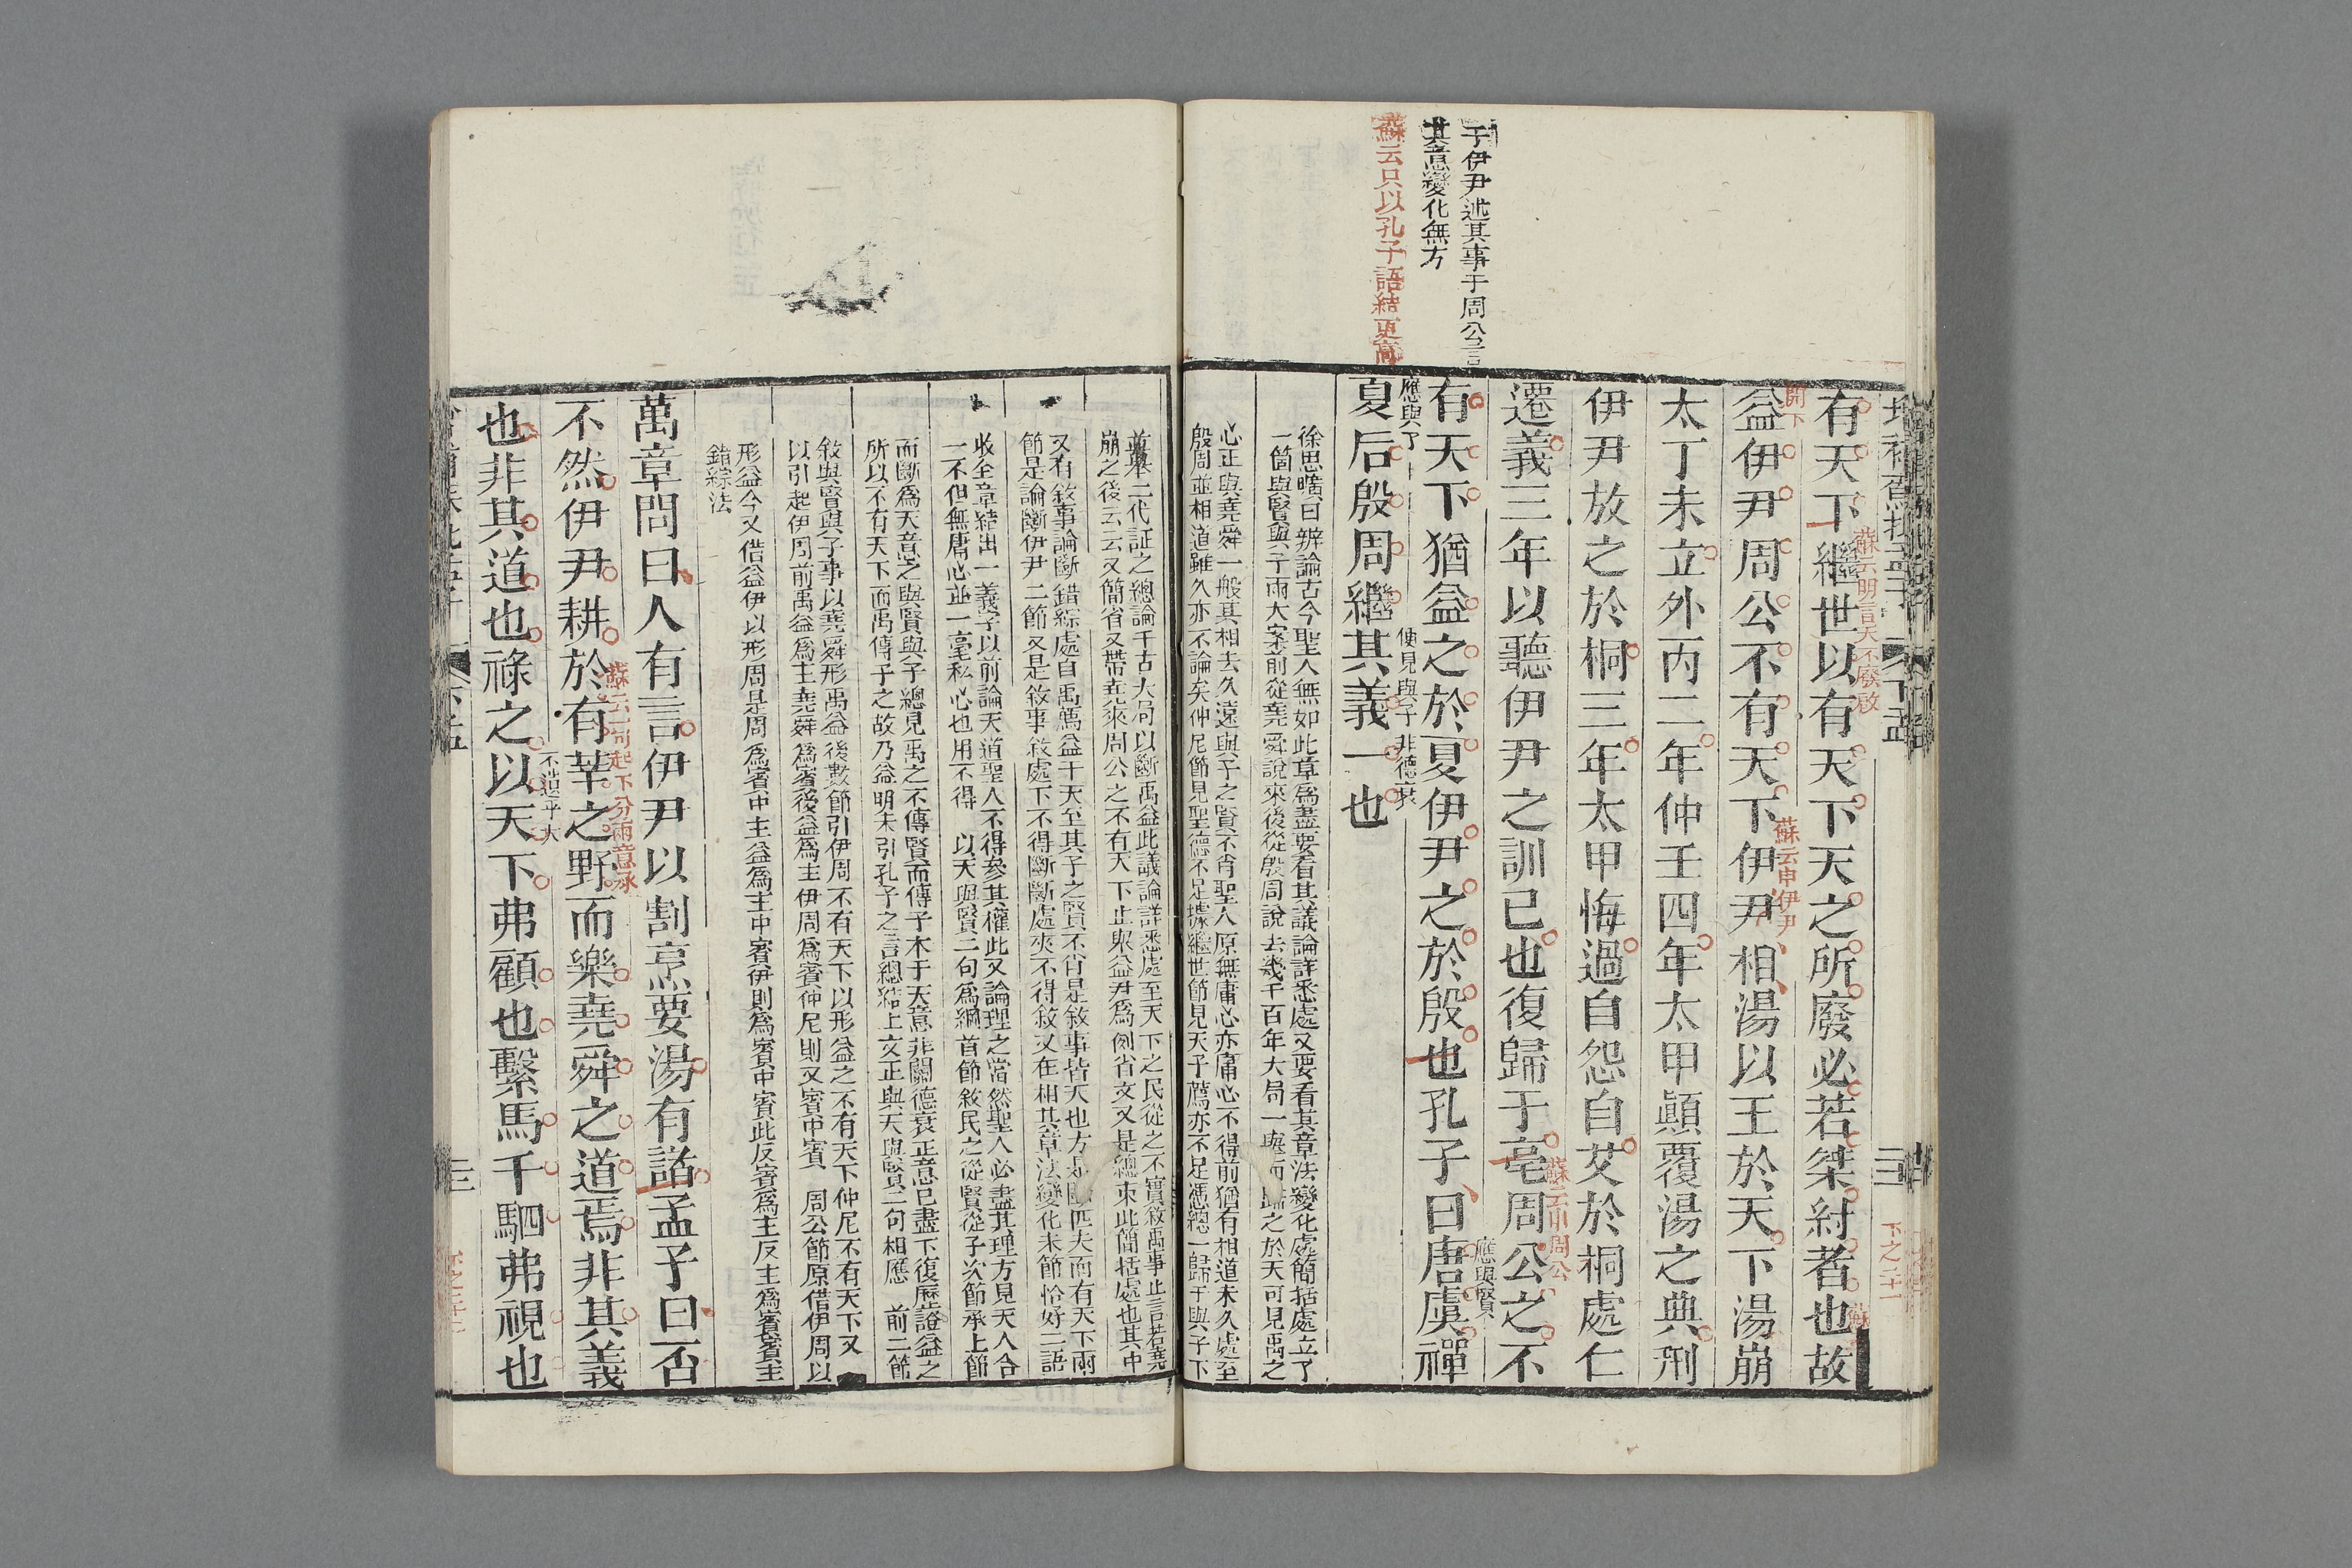 子伊尹述其事于周公言
其意變化無方
蘇云只以孔子語結更高
有天下繼世以有天下天之所廢必若桀紂者也故
蘇云明言天不廢啟
益伊尹周公不有天下伊尹相湯以王於天下湯崩
蘇云申伊尹
太丁未立外丙二年仲壬四年太甲顛覆湯之典刑
伊尹放之於桐三年太甲悔過自怨自艾於桐處仁
遷義三年以聽伊尹之訓己也復歸于亳周公之不
應與賢
有天下猶益之於夏伊尹之於殷也孔子曰唐虞禪
應與了
便見與子非德衰
夏后殷周繼其義一也
徐思曠曰辨論古今聖人無如此章為盡要看其議論詳悉處又要看其章法變化處簡括處立了
一箇與賢與子兩大案前從堯舜說來後從殷周說去幾千百年大局一與而歸之於天可見禹之
心正與堯舜一般其相去久遠與子之賢不肖聖人原無庸心亦庸心不得前猶有相道未久處至
殷周並相道雖久亦不論矣仲尼節見聖德不足據繼世節見天子薦亦不足憑總一歸于與子下
並舉二代証之總論千古大局以斷禹益此議論詳悉處至天下之民從之不實敘禹事止言若堯
崩之後云云又簡省又帶堯來周公之不有天下止與益尹為例省文又是總束此簡括處也其中
又有敘事論斷錯綜處自禹薦益于天至其子之賢不肖是敘事皆天也方是斷匹夫而有天下兩
節是論斷伊尹二節又是敘事敘處下不得斷斷處來不得敘又在相其章法變化末節恰好二語
收全章結出一義字以前論天道聖人不得參其權此又論理之當然聖人必盡其理方見天人合
一不但無庸心並一毫私心也用不得　以天與賢二句為綱首節敘民之從賢從子次節承上節
而斷為天意之與賢與子總見禹之不傳賢而傳子本于天意非關德衰正意已盡下復歷證益之
所以不有天下而禹傳子之故乃益明末引孔子之言總結上文正與天與賢二句相應　前二節
敘與賢與子事以堯舜形禹益後數節引伊周不有天下以形益之不有天下仲尼不有天下又
以引起伊周前禹益為主堯舜為賓後益為主伊周為賓仲尼則又賓中賓　周公節原借伊周以
形益今又借益伊以形周是周為賓中主益為主中賓伊則為賓中賓此反賓為主反主為賓賓主
錯綜法
萬章問曰人有言伊尹以割烹要湯有諸孟子曰否
蘇云一句起下分兩意承
不然伊尹耕於有莘之野而樂堯舜之道焉非其義
也非其道也祿之以天下弗顧也繫馬千駟弗視也